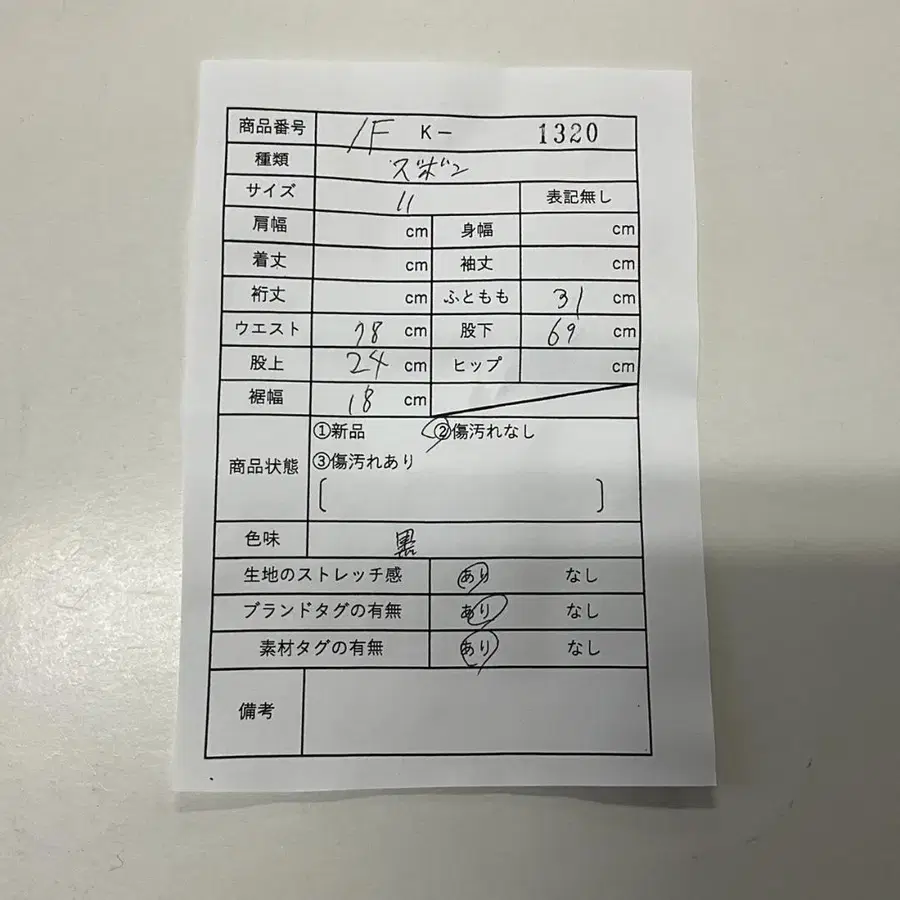 商品番号 1F K- 1320
種類 ズボン
サイズ 11 表記無し
肩幅 cm 身幅 cm
着丈 cm 袖丈 cm
裄丈 cm ふともも 31 cm
ウエスト 78 cm 股下 69 cm
股上 24 cm ヒップ cm
裾幅 18 cm
商品状態 ①新品 ②傷汚れなし
③傷汚れあり
[ ]
色味 黒
生地のストレッチ感 あり なし
ブランドタグの有無 あり なし
素材タグの有無 あり なし
備考